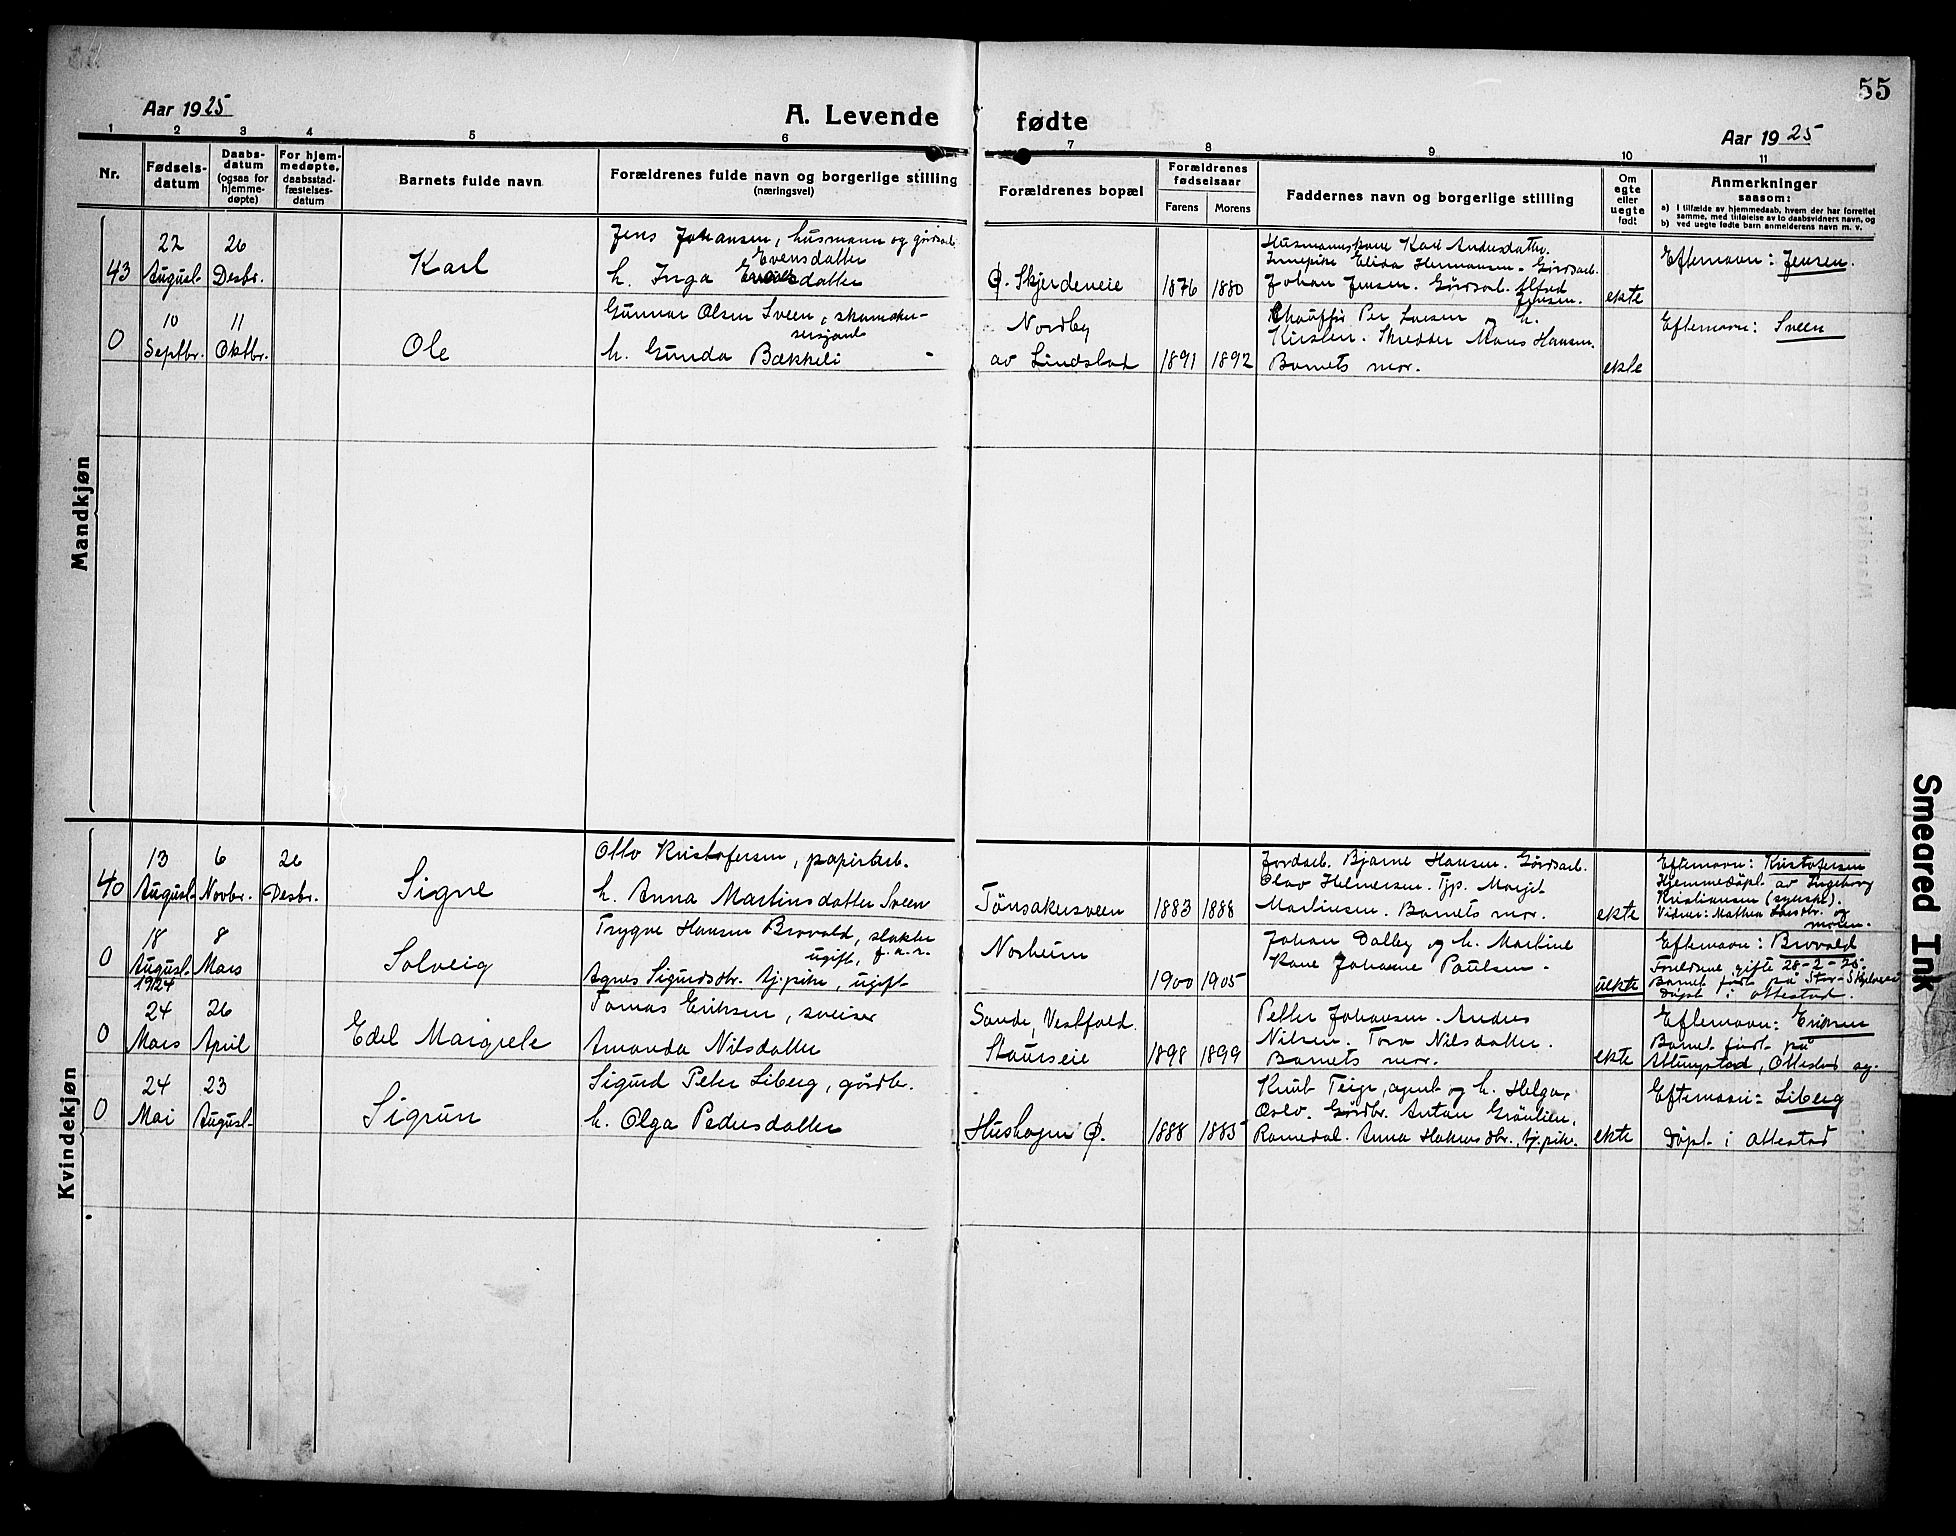 55
Aar 1925
A. Levende fødte
Aar 1925
1 2 3 4 5 6 7 8 9 10 11
Nr.
Fødsels-
datum
Daabs-
datum
(ogsaa for
hjemme-
døpte)
For hjem-
medøpte,
daabsstad-
fæstelses-
datum
Barnets fulde navn
Forældrenes fulde navn og borgerlige stilling
(næringsvei)
Forældrenes bopæl
Forældrenes
fødselsaar
Farens Morens
Faddernes navn og borgerlige stilling
Om
egte
eller
uegte
født
Anmerkninger
saasom:
a) I tilfælde av hjemmedaab, hvem der har forrettet
samme, med tilføielse av to daabsvidners navn, og
b) ved uegte fødte barn anmelderens navn m. v.
Mandkjøn
43
22
August
26
Desbr.
Karl
Jens Johansen, husmann og gårdsarb.
Evensdatter
h. Inga
Ø. Skjerdeneie
1876 1880
Husmannskone Kari Andersdatter.
Innepike Elida Hermansen. Gårdsarb.
Johan Jensen. Gårdsarb. Alfred
Jensen.
ekte
Efternavn: Jensen.
0
10
Septbr.
11
Oktbr.
Ole
Gunnar Olsen Sveen, skomaker-
sersjant
h. Gunda Bækkeli
Nordby
av Lindstad
1891 1892
Chauffør Per Larsen og h.
Kirsten. Skredder Hansen.
Barnets mor.
ekte
Efternavn: Sveen
Kvindekjøn
40
13
August
6
Novbr.
26
Desbr.
Signe
Otto Kristofersen, papirarb.
h. Anna Martinsdatter Sveen
Tönsakersveen
1883 1888
Jordarb. Bjarne Hansen. Gårdsarb.
Olav Helmersen. Tjp. Margit
Martinsen. Barnets mor.
ekte
Efternavn: Kristofersen
Hjemmedöpt av Ingeborg
Kristiansen (sykepl.).
Vidner: Mathea Larsdtr. og
moren.
0
18
August
1924
8
Mars
Solveig
Trygve Hansen Brovald, slakter
ugift, f. a. n.
Agnes Sigurdsdtr. tj.pike, ugift
Norheim
1900 1905
Johan Dalby og h. Martine
Kone Johanne Paulsen.
uekte
Efternavn: Brovald
Foreldrene gifte 28-2-25.
Barnet født på
Döpt i Ottestad.
0
24
Mars
26
April
Edel Margrete
Tomas Eriksen, sveiser
Amanda Nilsdatter
Sande, Vestfold.
Staurseie
1898 1899
Petter Johansen. Andres
Nilsen. Tora Nilsdatter.
Barnets mor.
ekte
Efternavn: Eriksen
Barnet født på
Ottestad sg.
0
24
Mai
23
August
Sigrun
Sigurd Peter Liberg, gårdbr.
h. Olga Pedersdatter
Hushagen Ø.
1888 1885
Knut Teige, agent og h. Helga,
Oslo. Gårdbr. Anton Grönlien,
Romedal. Anna Hakonsdtr., tj.pike.
ekte
Efternavn: Liberg
Döpt i Ottestad
Smeared Ink